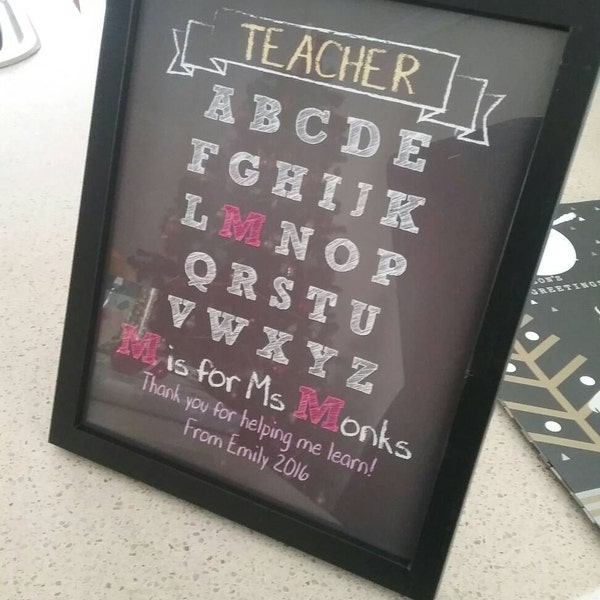 TEACHER
A B C D E
F G H I J K
L M N O P
Q R S T U
V W X Y Z
M is for Ms Monks
Thank you for helping me learn!
From Emily 2016
GREETINGS